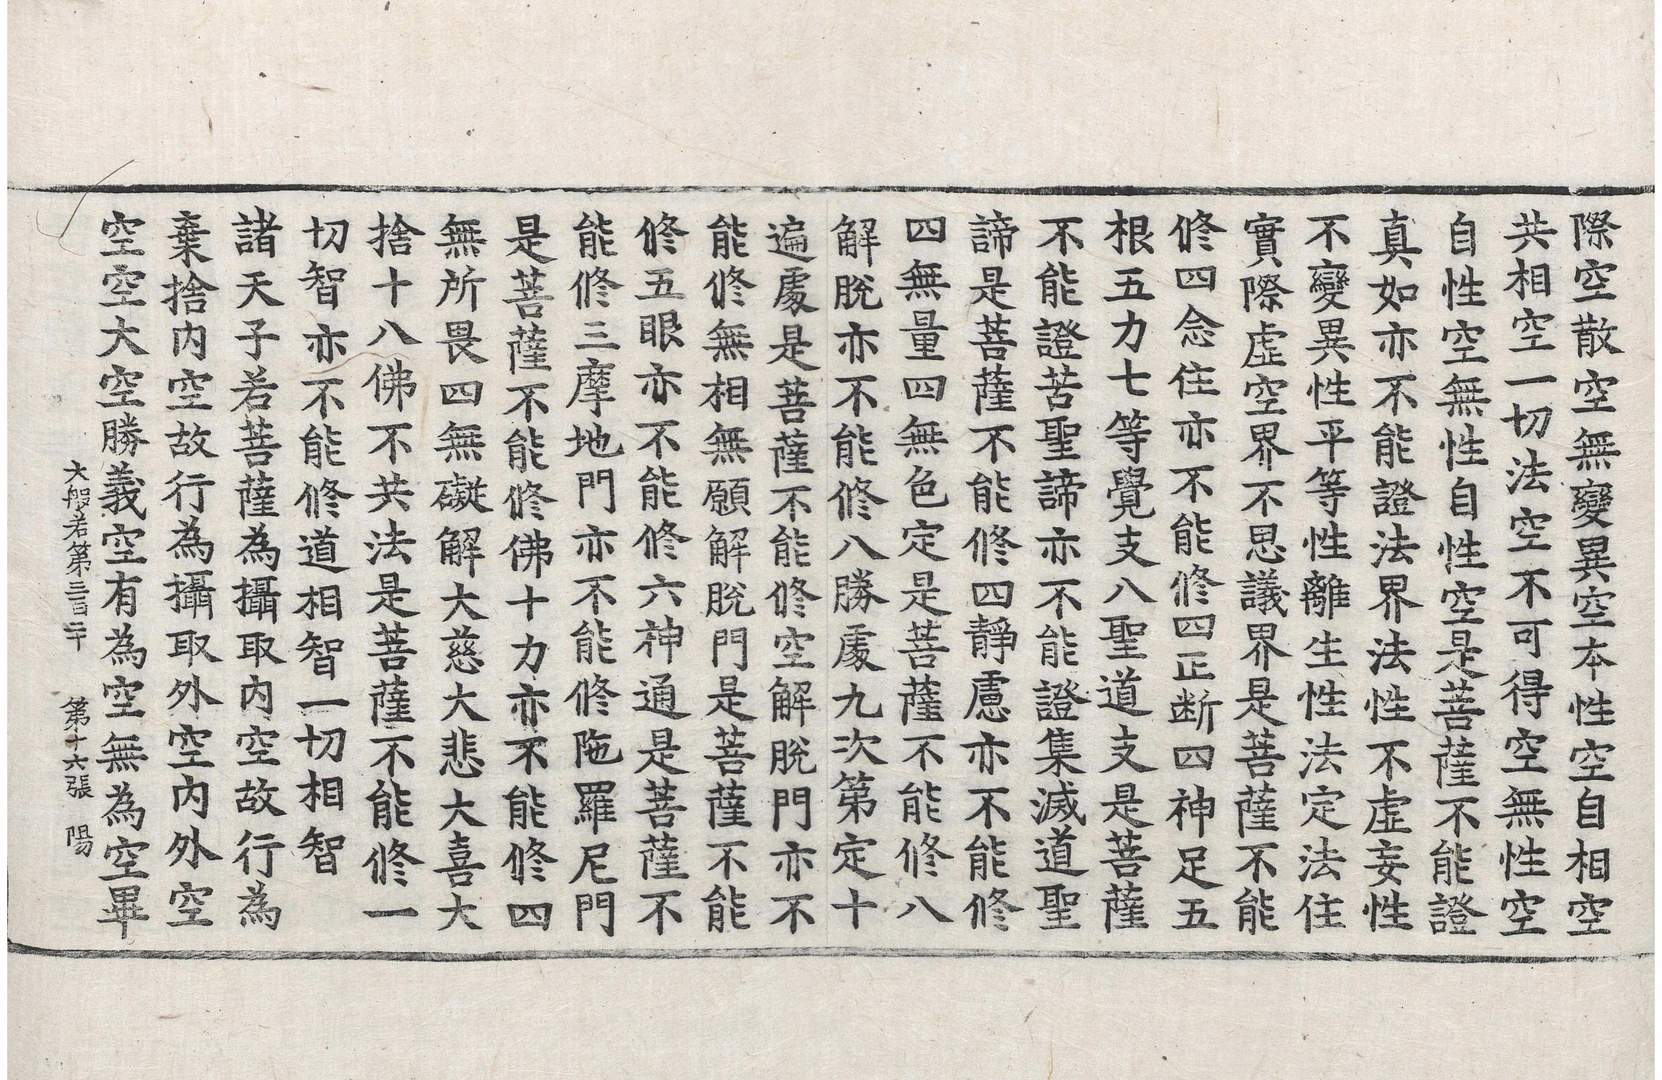 際空散空無變異空本性空自相空
共相空一切法空不可得空無性空
自性空無性自性空是菩薩不能證
真如亦不能證法界法性不虛妄性
不變異性平等性離生性法定法住
實際虛空界不思議界是菩薩不能
修四念住亦不能修四正斷四神足五
根五力七等覺支八聖道支是菩薩
不能證苦聖諦亦不能證集滅道聖
諦是菩薩不能修四靜慮亦不能修
四無量四無色定是菩薩不能修八
解脫亦不能修八勝處九次第定十
遍處是菩薩不能修空解脫門亦不
能修無相無願解脫門是菩薩不能
修五眼亦不能修六神通是菩薩不
能修三摩地門亦不能修陁羅尼門
是菩薩不能修佛十力亦不能修四
無所畏四無礙解大慈大悲大喜大
捨十八佛不共法是菩薩不能修一
切智亦不能修道相智一切相智
諸天子若菩薩為攝取內空故行為
棄捨內空故行為攝取外空內外空
空空大空勝義空有為空無為空畢
大般若第三百二十 第十六張 陽